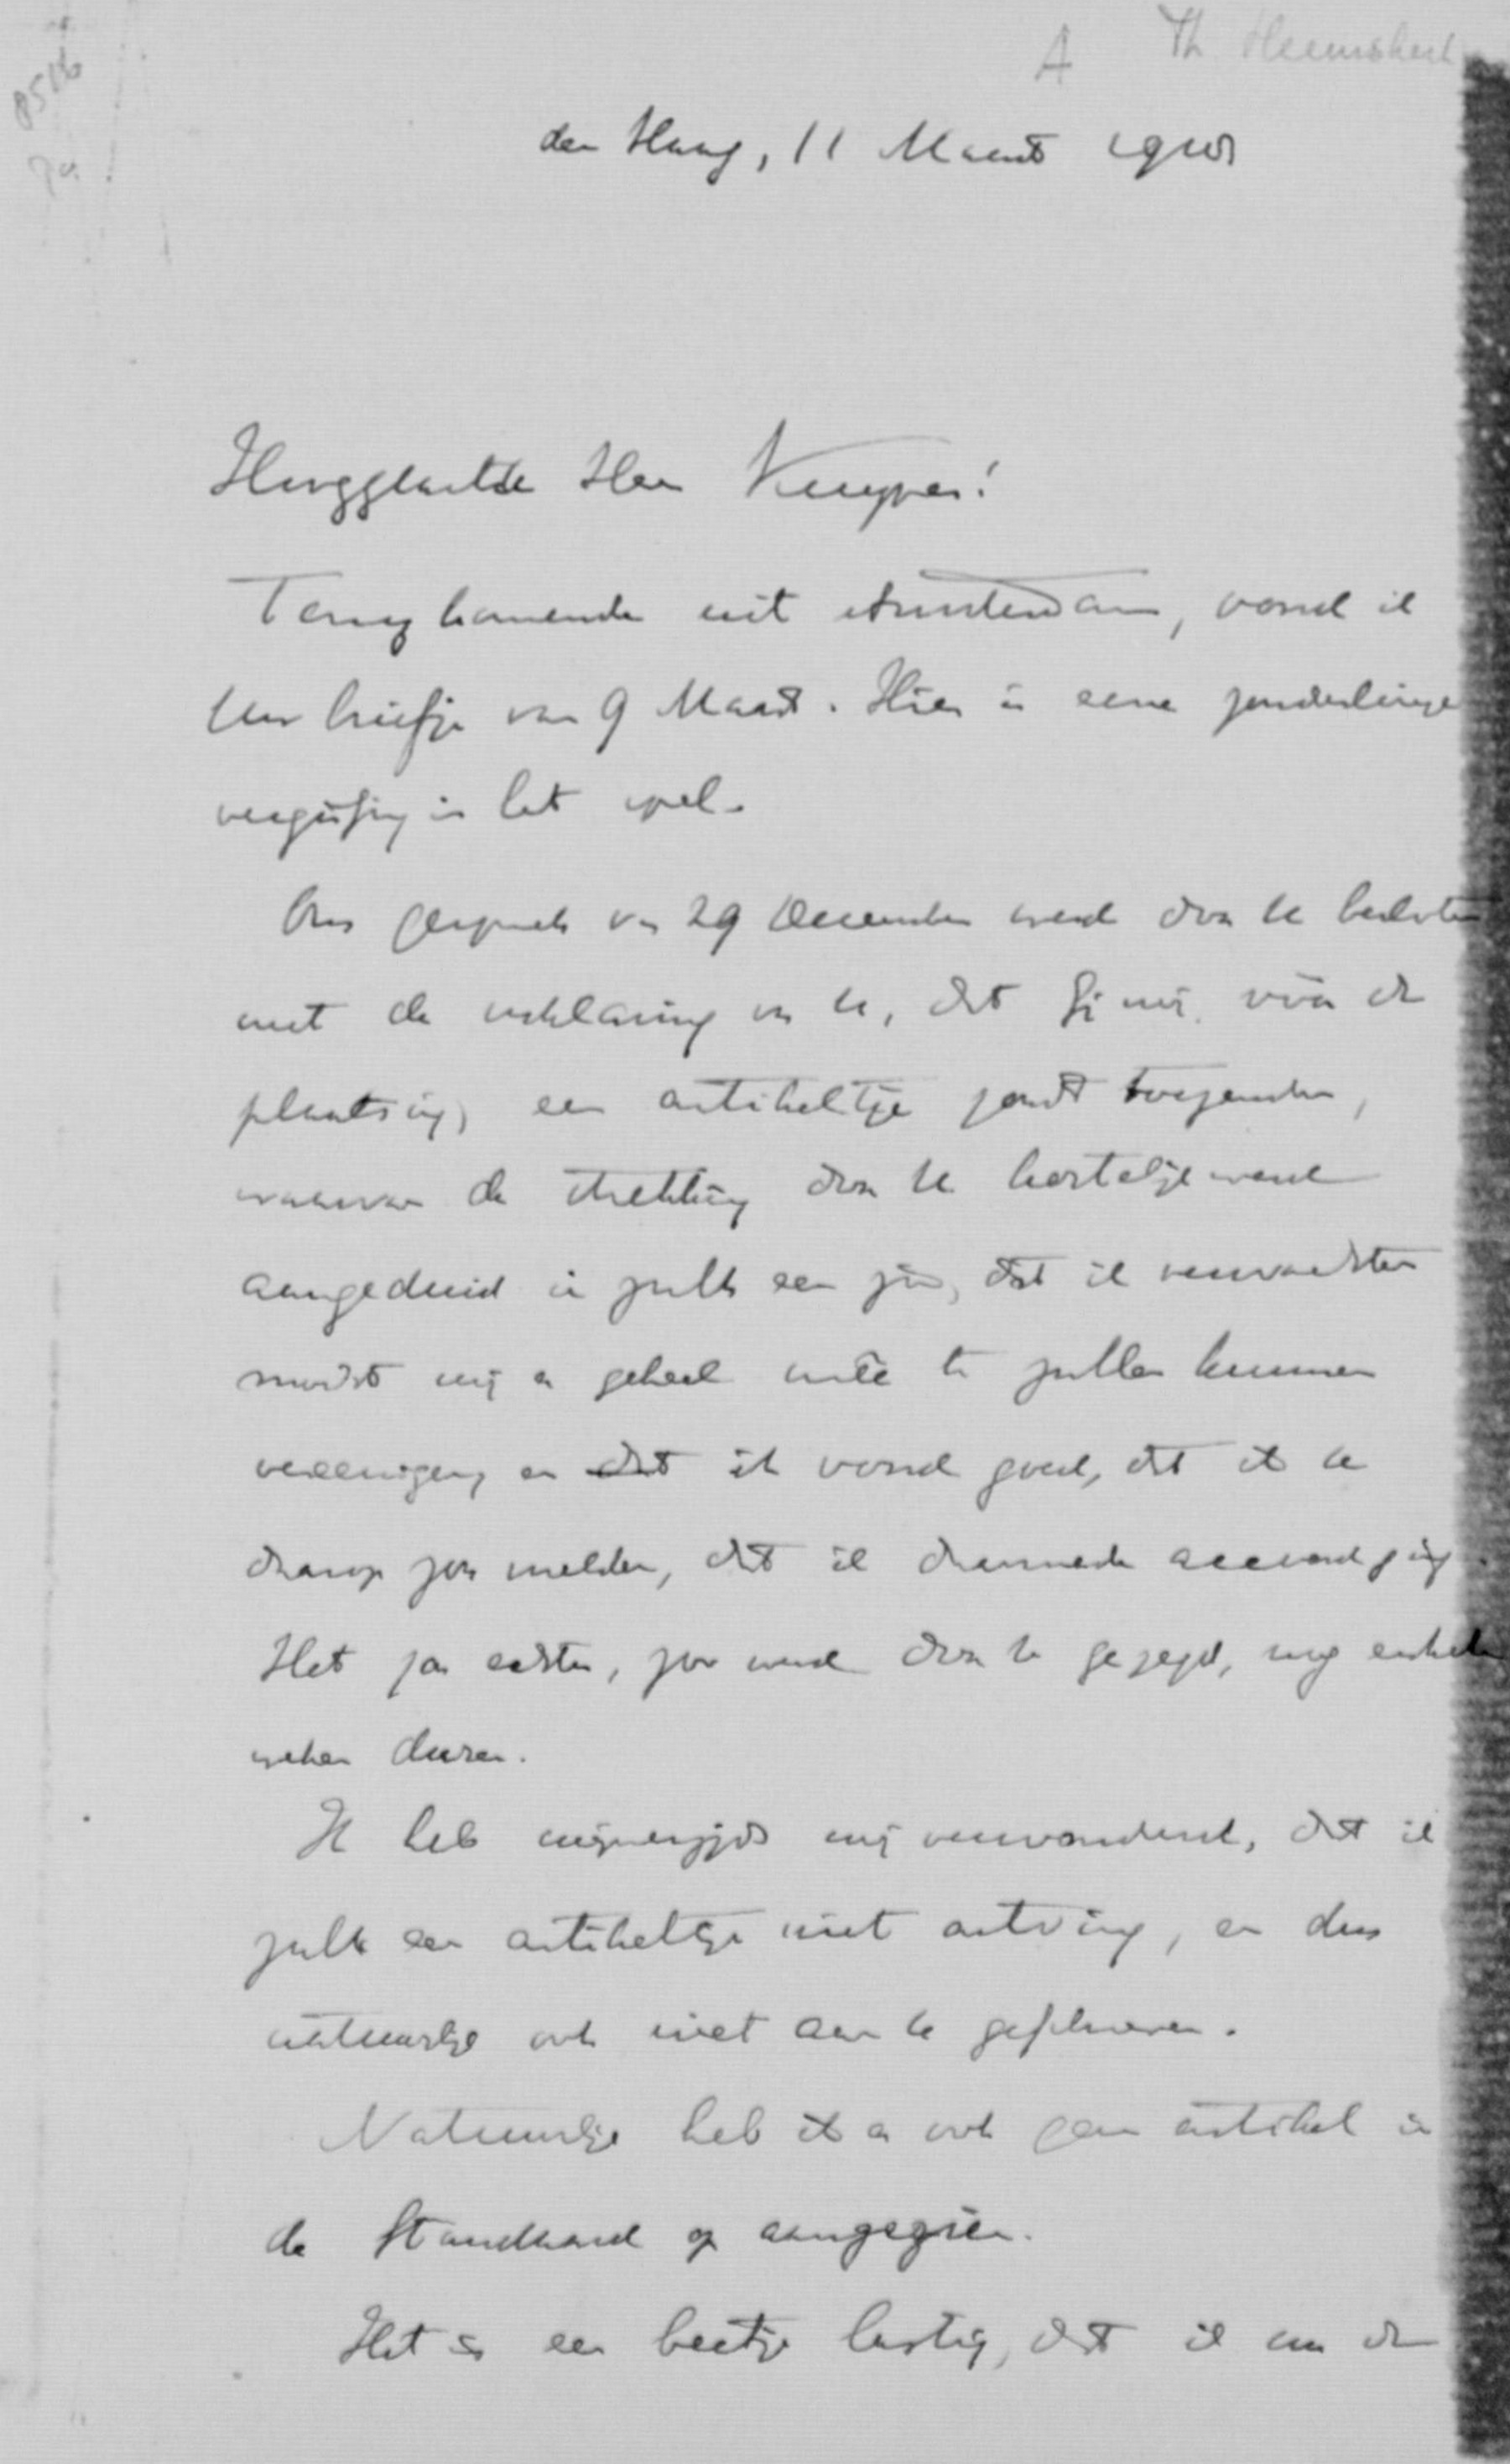 A Th Heemskerk
8516
den Haag, 11 Maart
Hooggeachte Heer Kuyper!
Terug komende uit Amsterdam, vond ik
Uw briefje van 9 Maart. Hier is eene zonderlinge
vergissing in het spel.
Ons gesprek van 29 December werd door U besloten
met de verklaring van U, dat Gij mij vóór de
plaatsing, een artikeltje zoudt toezenden,
waarvan de strekking door U hartelijk werd
aangeduid in zulk een zin, dat ik verwachten
mocht mij er geheel mede te zullen kunnen
vereenigen, en dat ik vond goed, dat ik U
daarop zou melden, dat ik daarmede accoord ging.
Het zou echter, zoo werd door U gezegd, nog enkele
weken duren.
Ik heb mijnerzijds mij verwonderd, dat ik
zulk een artikeltje niet ontving, en dus
natuurlijk ook niet aan U geschreven.
Natuurlijk heb ik er ook geen artikel in
de Standaard op aangezien.
Het is een beetje lastig, dat ik en de